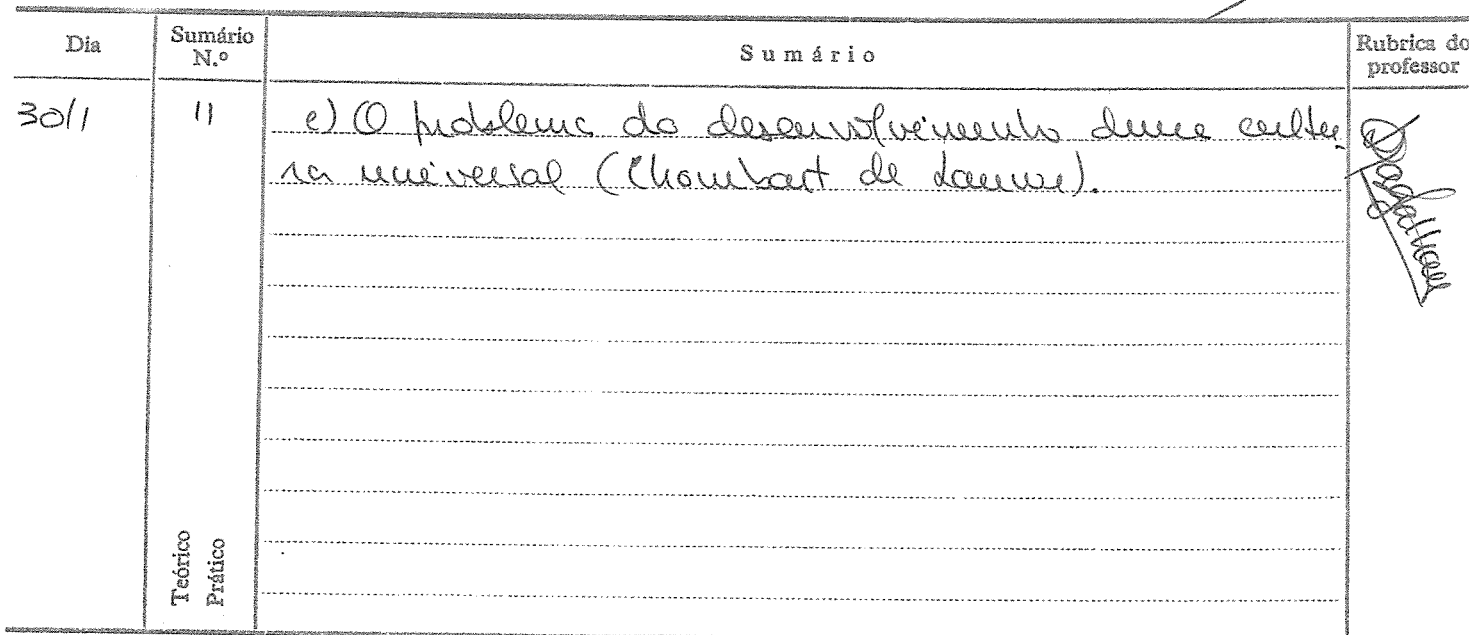 Dia
Sumário N.º
Sumário
Rubrica do professor
30/1
11
e) O problema do desenvolvimento duma cultu-
ra universal (Chombart de Lauwe).
Teórico
Prático